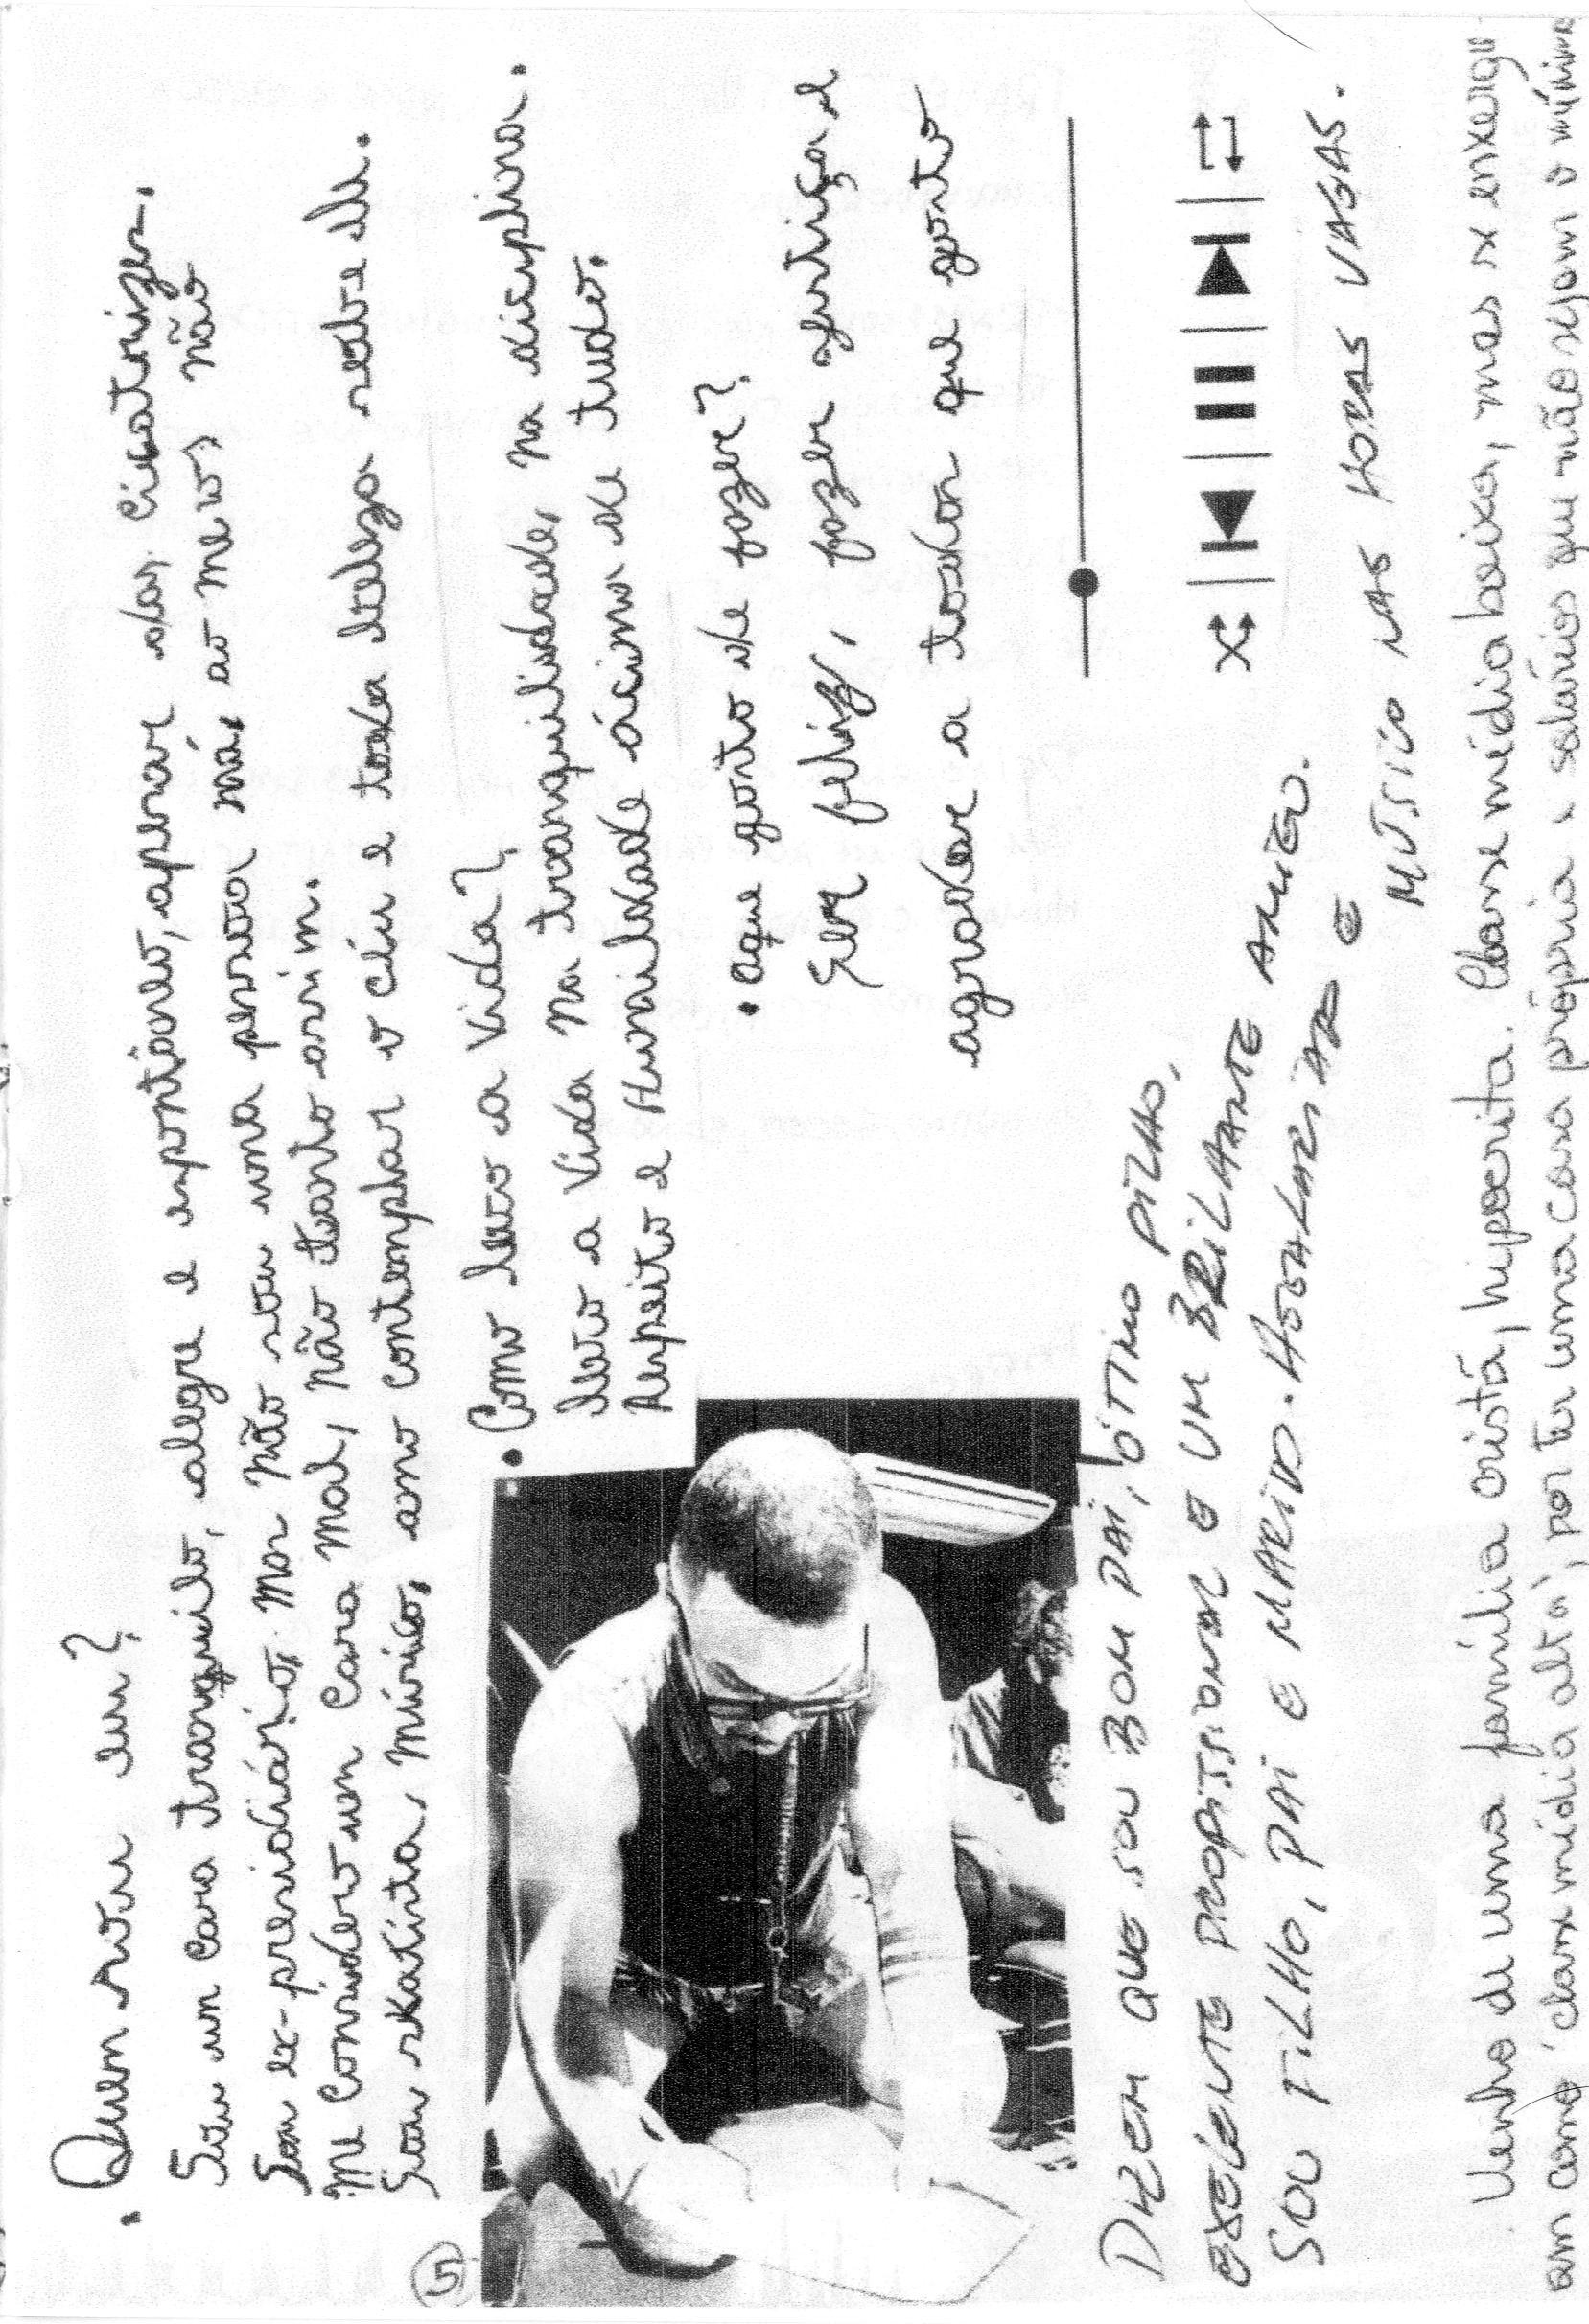 . Quem sou eu?
Sou um cara tranquilo, alegre e espontâneo, apesar das cicatrizes.
Sou ex-presidiário, mas não sou uma pessoa má, ao meus, não
me considero um cara mal, não tanto assim.
Sou skatista, músico, amo contemplar o céu e toda beleza sobre ele.
• Como levo a vida?
levo a vida na tranquilidade, na disciplina.
Respeito e humildade ácima de tudo.
• aque gosto de fazer?
Ser feliz, fazer justiça e
agradar a todos que gosto
5
DIZEM QUE SOU BOM PAI, ÓTIMO FILHO,
EXELENTE PROFISSIONAL E UM BRILHANTE AMIGO.
SOU FILHO, PAI E MARIDO.
E
MÚSICO NAS HORAS VAGAS.
Venho de uma família cristã, hipocrita. Classe média baixa, mas se enxergu
am como 'classe média alta', por ter uma casa própria e salários que não sejam o mínimo